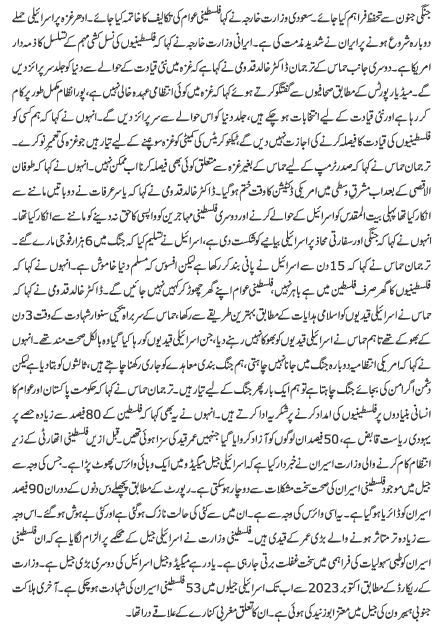 جنگی جنون سے تحفظ فراہم کیا جائے۔ سعودی وزارت خارجہ نے کہا فلسطینی عوام کی تکالیف کا خاتمہ کیا جائے۔ ادھر غزہ پر اسرائیلی حملے
دوبارہ شروع ہونے پر ایران نے شدید مذمت کی ہے۔ ایرانی وزارت خارجہ نے کہا کہ فلسطینیوں کی نسل کشی مہم کے تسلسل کا ذمہ دار
امریکا ہے۔ دوسری جانب حماس کے ترجمان ڈاکٹر خالد قدومی نے کہا ہے کہ غزہ میں نئی قیادت کے حوالے سے دنیا کو جلد سرپرائز دیں
گے۔ میڈیا رپورٹس کے مطابق صحافیوں سے گفتگو کرتے ہوئے کہا کہ غزہ میں کوئی انتظامی عہدہ خالی نہیں ہے، پورا نظام مکمل طور پر کام
کر رہا ہے اور نئی قیادت کے لیے انتخابات ہو چکے ہیں، جلد دنیا کو اس حوالے سے سرپرائز دیں گے۔ انہوں نے کہا کہ ہم کسی کو
فلسطینیوں کی قیادت کا فیصلہ کرنے کی اجازت نہیں دیں گے، ٹیکنوکریٹس کی کمیٹی کو غزہ سونپنے کے لیے تیار ہیں جو غزہ کی تعمیر نو کرے۔
ترجمان حماس نے کہا کہ صدر ٹرمپ کے لیے حماس کے بغیر غزہ سے متعلق کوئی بھی فیصلہ کرنا اب ممکن نہیں۔ انہوں نے کہا کہ طوفان
الاقصی کے بعد اب مشرق وسطی میں امریکی ڈکٹیشن کا وقت ختم ہو گیا۔ ڈاکٹر خالد قدومی نے کہا کہ یاسر عرفات نے دو باتیں ماننے سے
انکار کیا تھا پہلی بیت المقدس کو اسرائیل کے حوالے کرنے اور دوسری فلسطینی مہاجرین کو واپسی کا حق نہ دینے کو ماننے سے انکار کیا تھا۔
انہوں نے کہا کہ جنگی اور سفارتی محاذ پر اسرائیلی بیانیے کو شکست دی ہے، اسرائیل نے تسلیم کیا کہ جنگ میں 6 ہزار فوجی مارے گئے۔
ترجمان حماس نے کہا کہ 15 دن سے اسرائیل نے پانی بند کر رکھا ہے لیکن افسوس کہ مسلم دنیا خاموش ہے۔ انہوں نے کہا کہ
فلسطینیوں کا گھر صرف فلسطین میں ہے باہر نہیں، فلسطینی عوام اپنے گھر چھوڑ کر کہیں نہیں جائیں گے۔ ڈاکٹر خالد قدومی نے کہا کہ
حماس نے اسرائیلی قیدیوں کو اسلامی ہدایات کے مطابق بہترین طریقے سے رکھا، حماس کے سربراہ یحییٰ سنوار شہادت کے وقت 3 دن
کے بھوکے تھے تاہم حماس نے اسرائیلی قیدیوں کو بھوکا نہیں رہنے دیا، جن اسرائیلی قیدیوں کو رہا کیا گیا وہ بالکل صحت مند تھے۔ انہوں
نے کہا کہ امریکی انتظامیہ دوبارہ جنگ میں جانا نہیں چاہتی، ہم جنگ بندی معاہدے کو جاری رکھنا چاہتے ہیں، ثالثوں کو بتا دیا ہے لیکن
دشمن اگر امن کی بجائے جنگ چاہتا ہے تو ہم ایک بار پھر جنگ کے لیے تیار ہیں۔ ترجمان حماس نے کہا کہ حکومت پاکستان اور عوام کا
انسانی بنیادوں پر فلسطینیوں کی امداد کرنے پر شکریہ ادا کرتے ہیں۔ انہوں نے یہ بھی کہا کہ فلسطین کے 80 فیصد سے زیادہ حصے پر
یہودی ریاست قابض ہے، 50 فیصد ان لوگوں کو آزاد کروایا گیا جنہیں عمر قید کی سزا ہوئی تھیں۔ قبل ازیں فلسطینی اتھارٹی کے زیر
انتظام کام کرنے والی وزارت اسیران نے خبردار کیا ہے کہ اسرائیلی جیل میگیڈو میں ایک وبائی وائرس پھوٹ پڑا ہے۔ جس کی وجہ سے
جیل میں موجود فلسطینی اسیران کی صحت سخت مشکلات سے دوچار ہو سکتی ہے۔ رپورٹ کے مطابق پچھلے دس دنوں کے دوران 90 فیصد
اسیران کو ڈائریا ہو گیا ہے۔ یہ اسی وائرس کی وجہ سے ہے۔ ان میں سے کئی کی حالت نازک ہو گئی ہے اور کئی بے ہوش ہو گئے۔ اس وجہ
سے زیادہ تر متاثر ہونے والے بڑی عمر کے قیدی ہیں۔ فلسطینی وزارت نے اسرائیلی جیل کے محکمے پر الزام لگایا ہے کہ ان فلسطینی
اسیران کو طبی سہولیات کی فراہمی میں سخت غفلت برتی جا رہی ہے۔ یاد رہے میگیڈو ایک بڑی اسرائیلی جیل ہے۔ وزارت
کے ریکارڈ کے مطابق اکتوبر 2023 سے اب تک اسرائیلی جیلوں میں 53 فلسطینی اسیران کی شہادت ہو چکی ہے۔ آخری ہلاکت
جنوبی ہیبرون کی جیل میں معتز ابو زنید کی ہوئی ہے۔ ان کا تعلق مغربی کنارے کے علاقے درا تھا۔